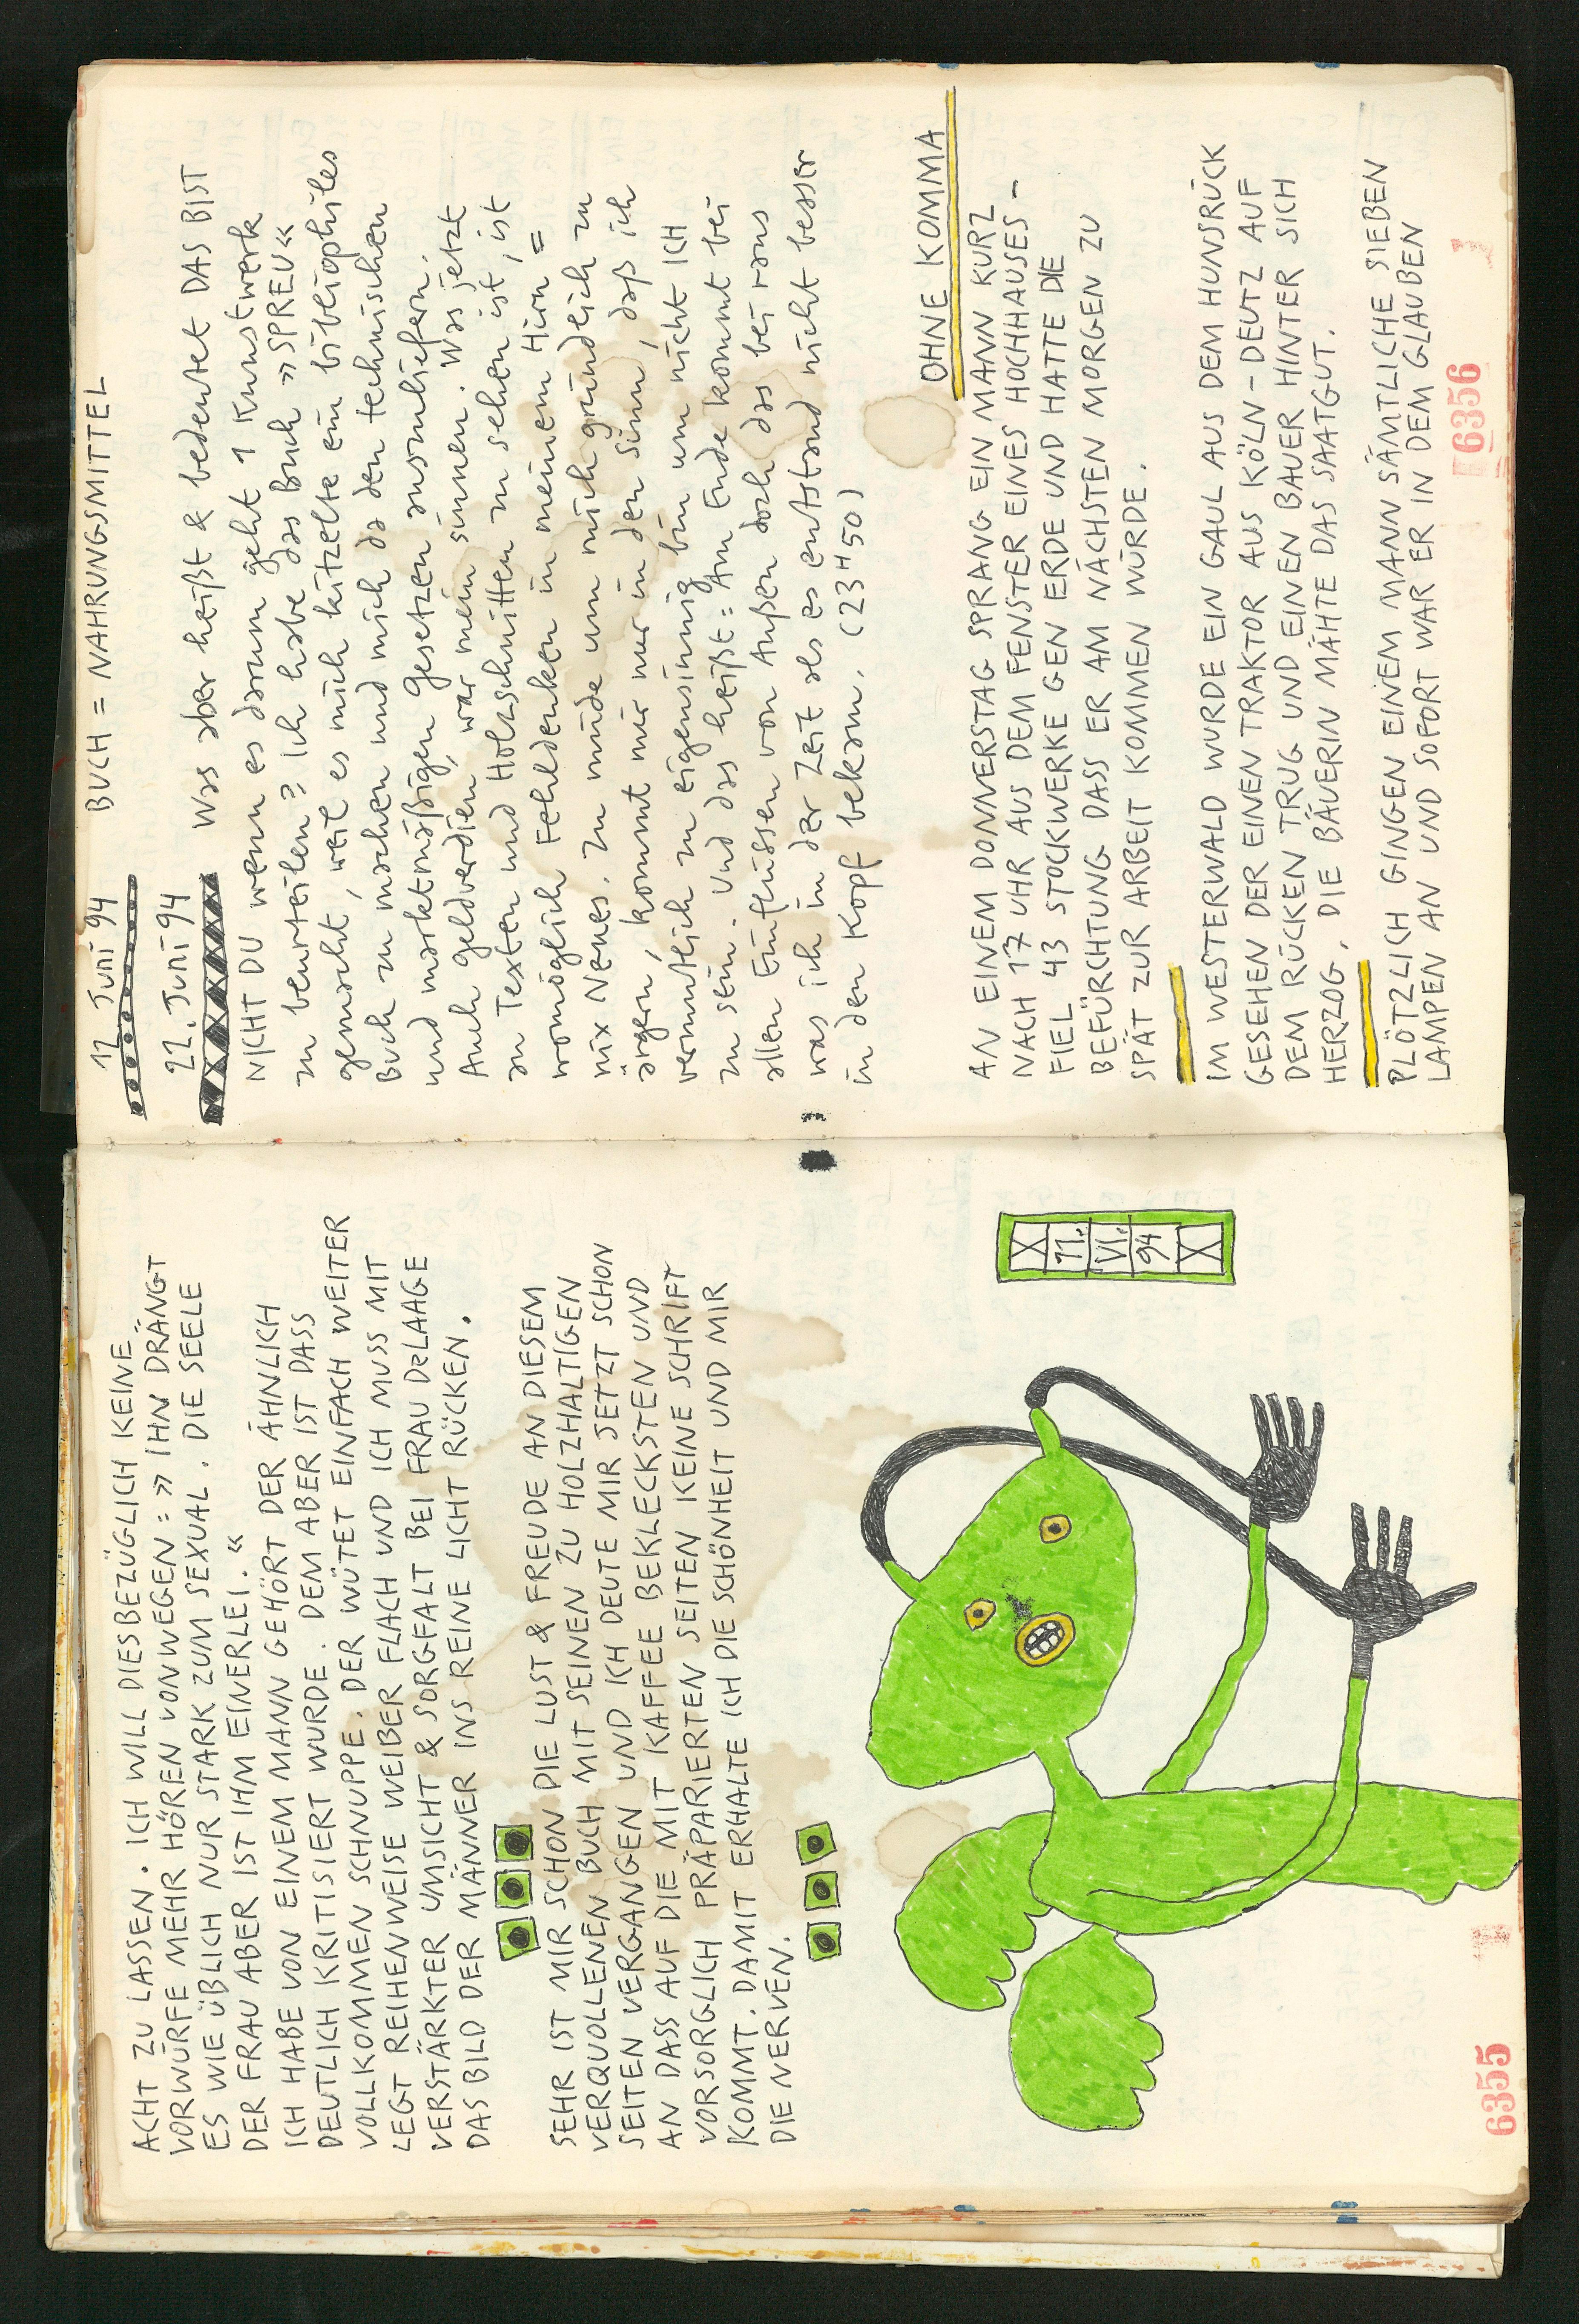 ACHT ZU LASSEN. ICH WILL DIESBEZÜGLICH KEINE
VORWÜRFE MEHR HÖREN VONWEGEN: »IHN DRÄNGT
ES WIE ÜBLICH NUR STARK ZUM SEXUAL. DIE SEELE
DER FRAU ABER IST IHM EINERLEI.«
ICH HABE VON EINEM MANN GEHÖRT DER ÄHNLICH
DEUTLICH KRITISIERT WURDE. DEM ABER IST DASS
VOLLKOMMEN SCHNUPPE. DER WÜTET EINFACH WEITER
LEGT REIHENWEISE WEIBER FLACH UND ICH MUSS MIT
VERSTÄRKTER UMSICHT & SORGFALT BEI FRAU DeLAAGE
DAS BILD DER MÄNNER INS REINE LICHT RÜCKEN.
SEHR IST MIR SCHON DIE LUST & FREUDE AN DIESEM
VERQUOLLENEN BUCH MIT SEINEN ZU HOLZHALTIGEN
SEITEN VERGANGEN UND ICH DEUTE MIR JETZT SCHON
AN DASS AUF DIE MIT KAFFEE BEKLECKSTEN UND
VORSORGLICH PRÄPARIERTEN SEITEN KEINE SCHRIFT
KOMMT. DAMIT ERHALTE ICH DIE SCHÖNHEIT UND MIR
DIE NERVEN.
X
11.
VI.
94
X
6355
12 Juni 94 BUCH = NAHRUNGSMITTEL
22. Juni 94 Was aber heißt & bedeutet DAS BIST
NICHT DU wenn es darum geht 1 Kunstwerk
zu beurteilen? Ich habe das Buch »SPREU«
gemacht, weil es mich kitzelte ein bibliophiles
Buch zu machen und mich da den technischen
und marktmäßigen Gesetzen auszuliefern.
Auch geldverdien, war mein sinnen. Was jetzt
an Texten und Holzschnitten zu sehen ist, ist
womöglich Fehldenken in meinem Hirn =
nix Neues. Zu müde um mich gründlich zu
ärgern, kommt mir nur in den Sinn, daß ich
vermutlich zu eigensinnig bin um nicht ICH
zu sein. Und das heißt = Am Ende kommt bei
allen Einflüssen von Außen doch das bei raus
was ich in der Zeit als es entstand nicht besser
in den Kopf bekam. (23H50)
OHNE KOMMA
AN EINEM DONNERSTAG SPRANG EIN MANN KURZ
NACH 17 UHR AUS DEM FENSTER EINES HOCHHAUSES –
FIEL 43 STOCKWERKE GEN ERDE UND HATTE DIE
BEFÜRCHTUNG DASS ER AM NÄCHSTEN MORGEN ZU
SPÄT ZUR ARBEIT KOMMEN WÜRDE.
IM WESTERWALD WURDE EIN GAUL AUS DEM HUNSRÜCK
GESEHEN DER EINEN TRAKTOR AUS KÖLN-DEUTZ AUF
DEM RÜCKEN TRUG UND EINEN BAUER HINTER SICH
HERZOG. DIE BÄUERIN MÄHTE DAS SAATGUT.
PLÖTZLICH GINGEN EINEM MANN SÄMTLICHE SIEBEN
LAMPEN AN UND SOFORT WAR ER IN DEM GLAUBEN
6356